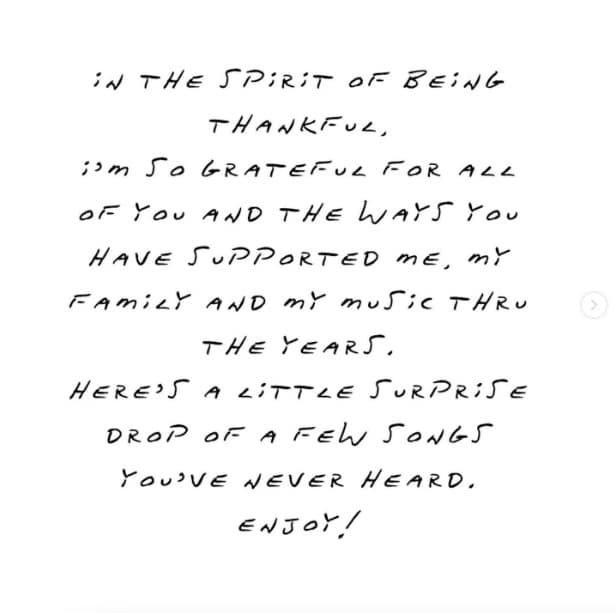 iN THE SPiRiT OF BEiNG
THANKFUL,
i'm SO GRATEFUL FOR ALL
OF YOU AND THE WAYS YOU
HAVE SUPPORTED mE, mY
FAmiLY AND mY muSiC THRU
THE YEARS.
HERE'S A LiTTLE SURPRiSE
DROP OF A FEW SONGS
YOU'VE NEVER HEARD.
ENJOY!